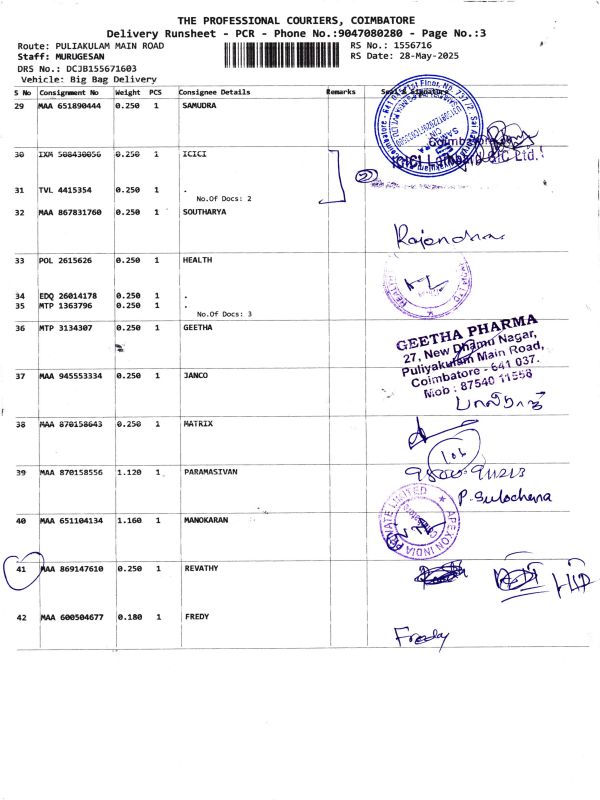 THE PROFESSIONAL COURIERS, COIMBATORE
Delivery Runsheet - PCR - Phone No.:9047080280 - Page No.:3
Route: PULIAKULAM MAIN ROAD RS No.: 1556716
Staff: MURUGESAN RS Date: 28-May-2025
DRS No.: DCJB155671603
Vehicle: Big Bag Delivery
S No Consignment No Weight PCS Consignee Details Remarks Seal & Signature
29 MAA 651890444 0.250 1 SAMUDRA
30 IXM 508430056 0.250 1 ICICI
ICICI Lombard GIC Ltd.
31 TVL 4415354 0.250 1 .
No.Of Docs: 2
32 MAA 867831760 0.250 1 SOUTHARYA
33 POL 2615626 0.250 1 HEALTH
34 EDQ 26014178 0.250 1 .
35 MTP 1363796 0.250 1 .
No.Of Docs: 3
36 MTP 3134307 0.250 1 GEETHA
GEETHA PHARMA
27, New Dhamu Nagar,
Puliyakulam Main Road,
Coimbatore - 641 037.
Mob : 87540 11558
37 MAA 945553334 0.250 1 JANCO
38 MAA 870158643 0.250 1 MATRIX
39 MAA 870158556 1.120 1 PARAMASIVAN
P. Sulochena
40 MAA 651104134 1.160 1 MANOKARAN
APEXON INDIA PRIVATE LIMITED
41 MAA 869147610 0.250 1 REVATHY
42 MAA 600504677 0.180 1 FREDY
Fredy